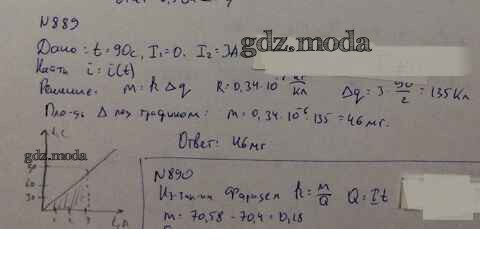 N889
Дано: t = 90с, I₁ = 0. I₂ = 3А
gdz.moda
i = i(t)
Решение: m = k Δq k = 0,34·10⁻⁶ кг/Кл Δq = 3·90/2 = 135 Кл
Пло-дь Δ под графиком: m = 0,34·10⁻⁶·135 = 46 мг.
Ответ: 46 мг
t, c
gdz.moda
90
60
30
1 2 3
I, А
N890
Фарадея k = m/Q Q = It
m = 70,58 - 70,4 = 0,18